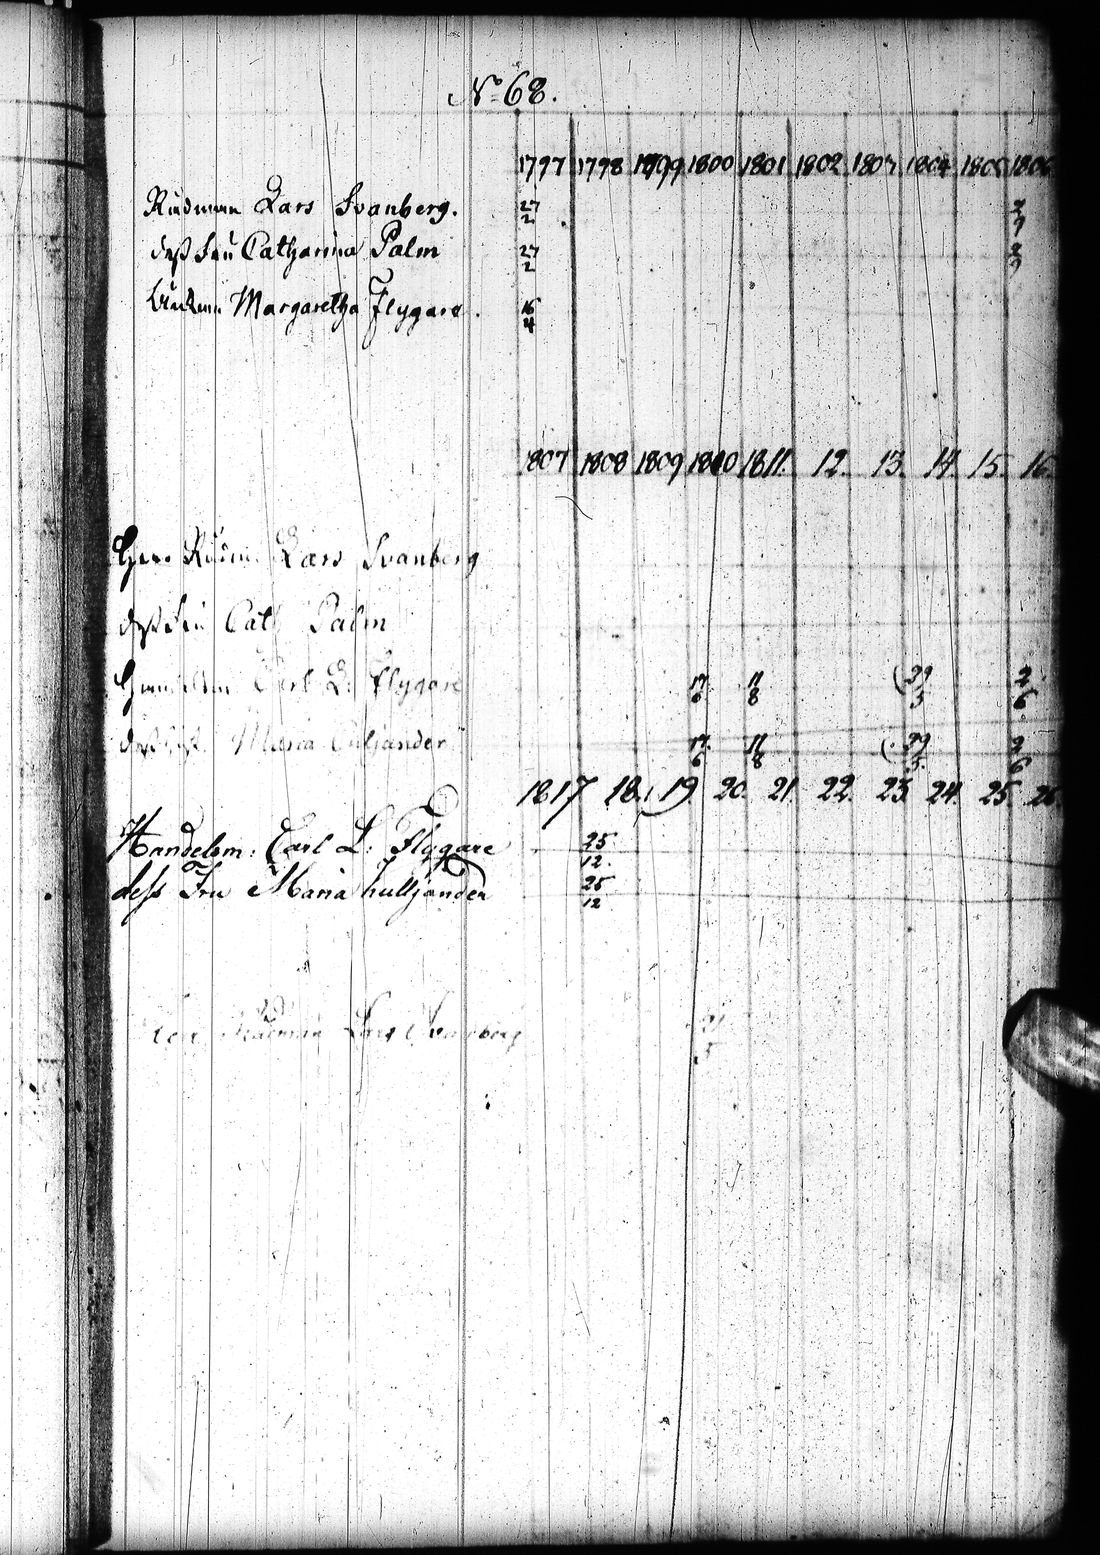 N:o 68.
1797 1798 1799 1800 1801 1802 1803 1804 1805 1806
Rådman Lars Svanberg. 27/2 2/9
dess Fru Catharina Palm 27/2 2/9
Margaretha Flygare. 16/4
1807 1808 1809 1810 1811. 12. 13. 14. 15. 16.
Herr Rådm. Lars Svanberg
dess Fru Cath Palm
Handelsm. Carl L. Flygare 17/6 11/8 (29/3 2/6
Maria Culjander 17/6 11/8 (29/3 2/6
1817 18. 19. 20. 21. 22. 23. 24. 25. 26
Handelsm: Carl L: Flygare 25/12.
dess Fru Maria hulljander 25/12
Rådman Lars Svanberg